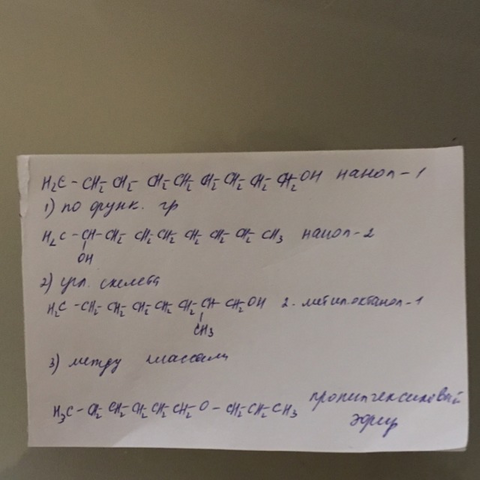 H₂C - CH₂ CH₂ - CH₂ CH₂ CH₂ - CH₂ - CH₂ - CH₂OH нанол-1
1) по функ. гр
H₂C - CH - CH₂ CH₂ CH₂ CH₂ CH₂ CH₂ CH₃ нанол-2
OH
2) угл. скелета
H₂C - CH₂ CH₂ CH₂ CH₂ CH₂ CH - CH₂OH 2-метилоктанол-1
CH₃
3) между классами
H₃C - CH₂ CH₂ CH₂ CH₂ CH₂ O - CH₂ CH₂ CH₃ пропилгексиловый
эфир